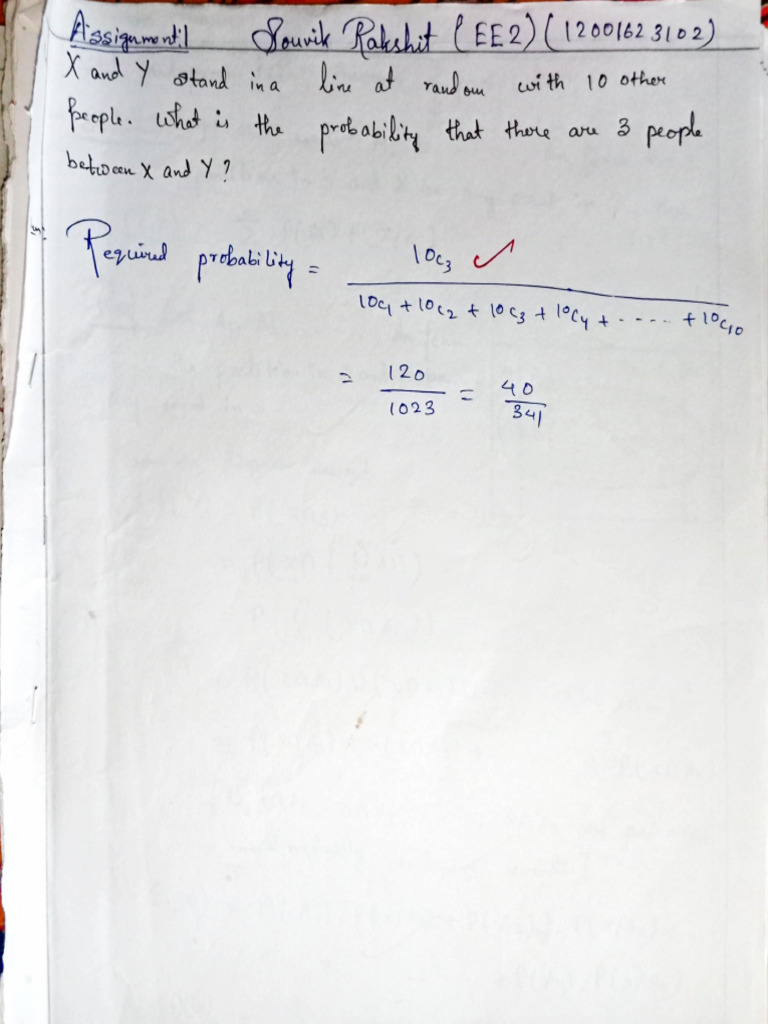 Assignment:1 Souvik Rakshit (EE2) (12001623102)
X and Y stand in a line at random with 10 other
people. What is the probability that there are 3 people
between X and Y?
Required probability = 10C3 / 10C1 + 10C2 + 10C3 + 10C4 + ..... + 10C10
= 120/1023 = 40/341